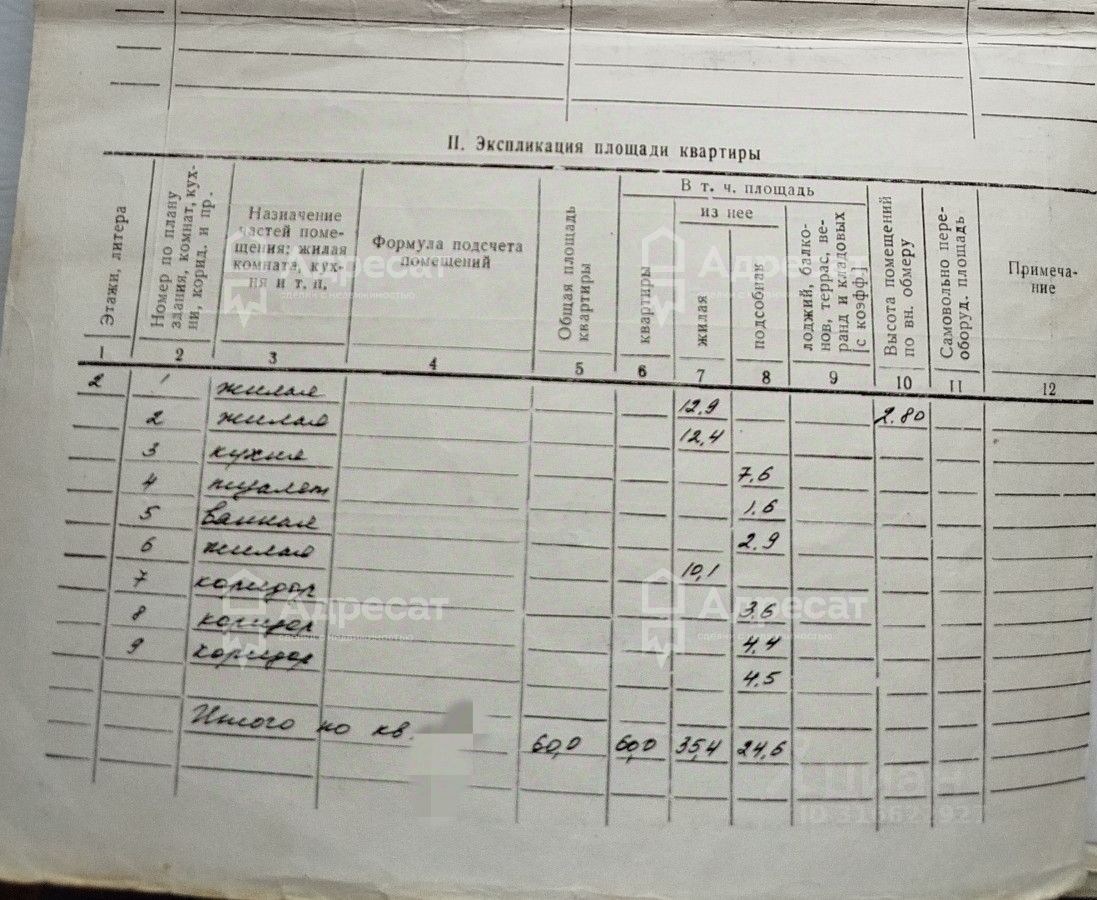 II. Экспликация площади квартиры
Этажи, литера
Номер по плану здания, комнат, кухни, корид. и пр.
Назначение частей помещения: жилая комната, кухня и т. п.
Формула подсчета помещений
Общая площадь квартиры
В т. ч. площадь
квартиры
из нее
жилая
подсобная
лоджий, балконов, террас, веранд и кладовых [с коэфф.]
Высота помещений по вн. обмеру
Самовольно переоборуд. площадь
Примечание
1 2 3 4 5 6 7 8 9 10 11 12
2 1 жилая 12,9 2.80
2 жилая 12,4
3 кухня 7,6
4 туалет 1,6
5 ванная 2,9
6 жилая 10,1
7 коридор 3,6
8 коридор 4,4
9 коридор 4,5
Итого по кв. 60,0 60,0 35,4 24,6
Адресат
сделки с недвижимостью
Адресат
сделки с недвижимостью
Адресат
сделки с недвижимостью
Адресат
сделки с недвижимостью
циан